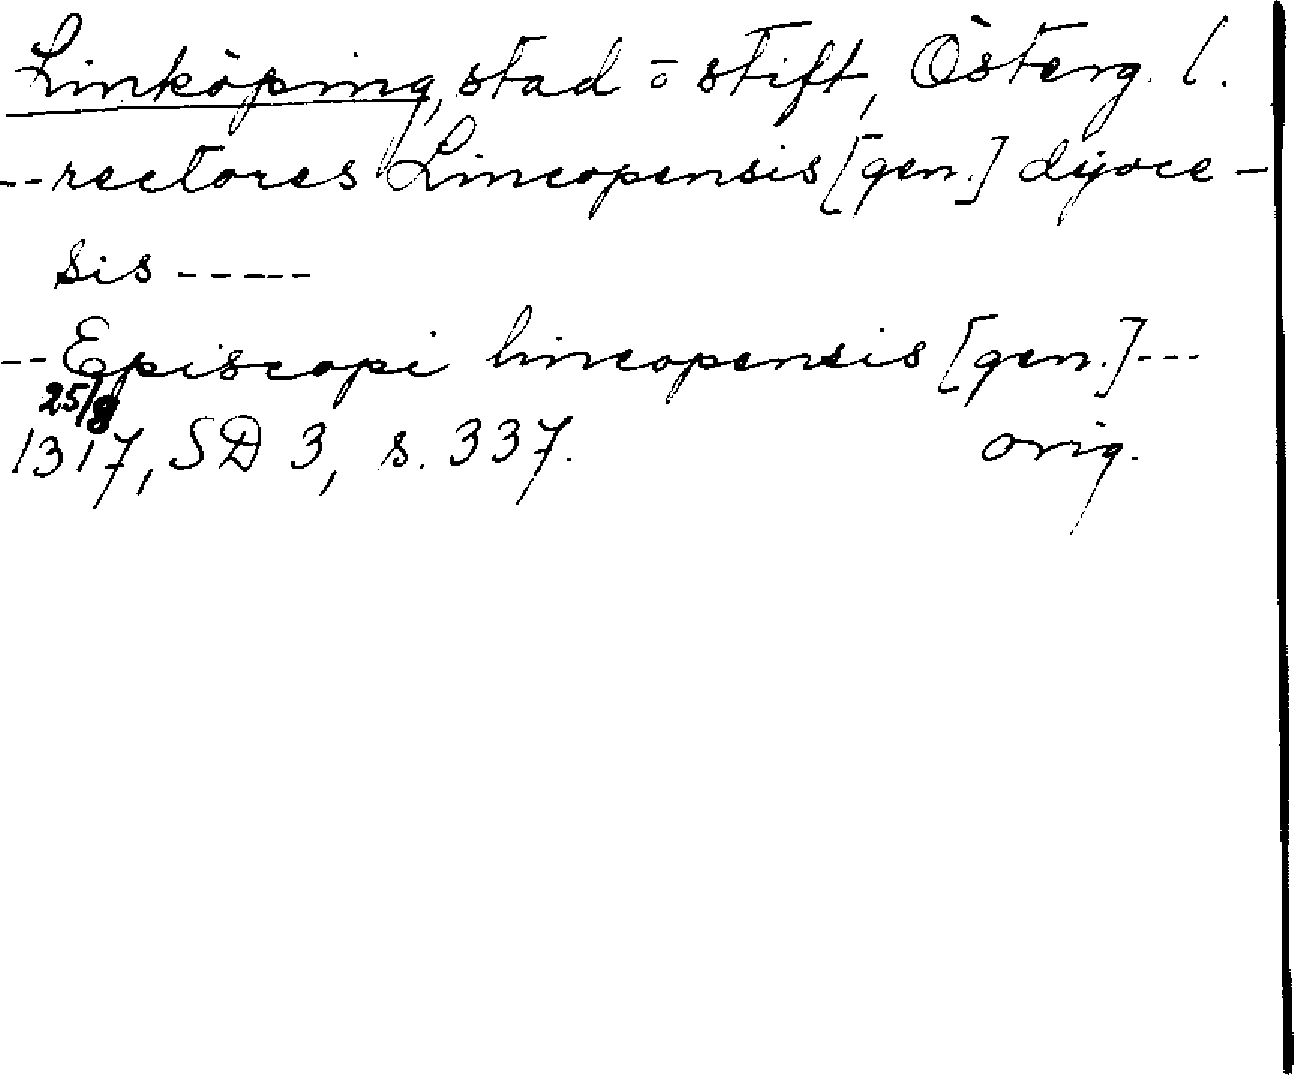 Linköping, stad o stift, Österg. l.
-- rectores Lincopensis [gen.] dyoce-
sis -----
-- Episcopi lincopensis [gen.] ---
25/8
1317, SD 3, s. 337. orig.